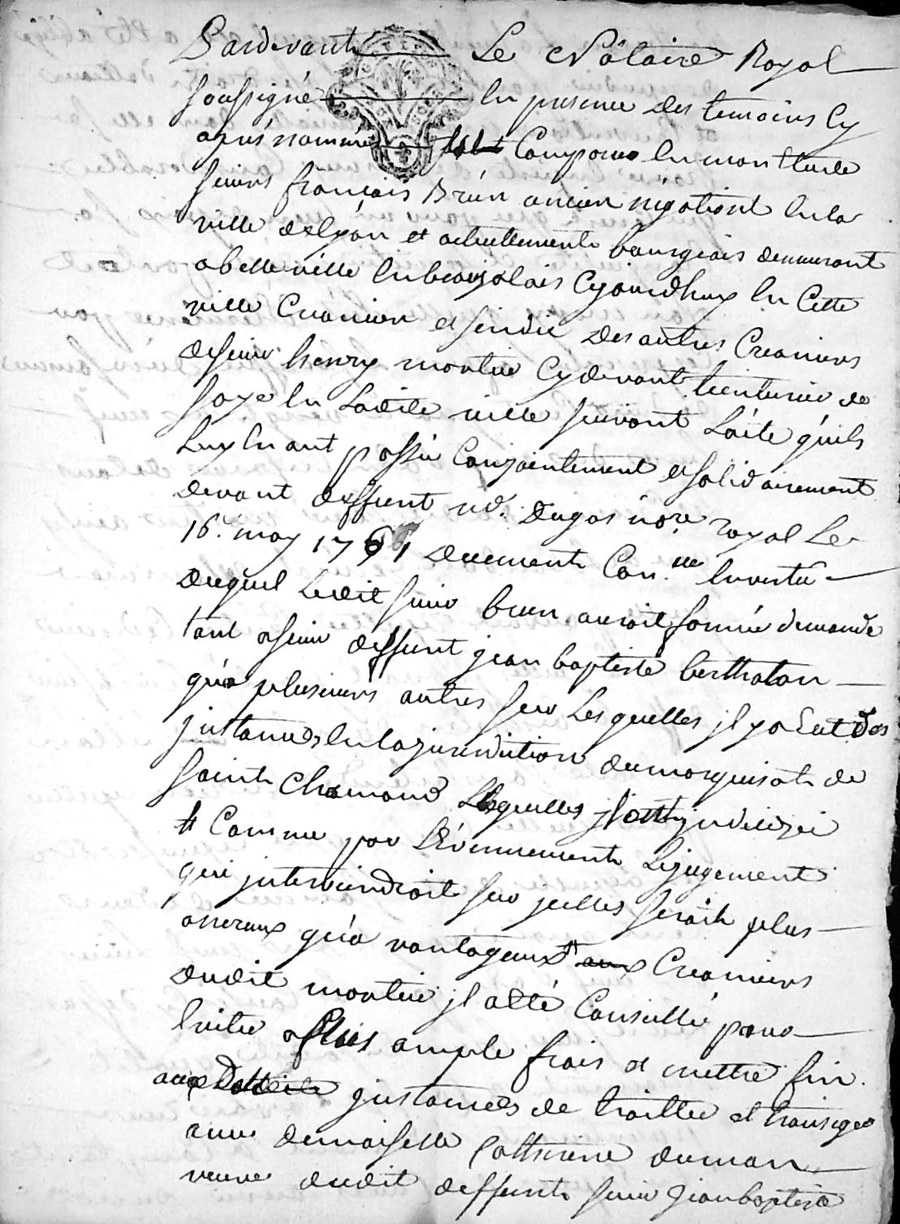 Pardevant Le Notaire Royal
soussigné en presence des temoins cy
aprés nommé comparu en
sieur françois Brun ancien négotiant en la
ville de Lyon et actuellement bourgeois demeurant
a belleville en beaujolais cejourdhuy en cette
ville creancier et sindic des autres creanciers
de sieur henry montue cydevant teinturier de
soye en Ladite ville suivant L'acte qu'ils
Luy en ont passé conjointement et solidairement
devant deffunt me. Dugas nore royal Le
16e. may 1761 duement con.lle en vertu
duquel Ledit sieur brun auroit formé demande
tant a sieur deffunt jean baptiste bertholon
qu'a plusieurs autres sur Lesquelles jl y a Eut des
jnstances en la jurisdiction du marquisat de
saint chamond Lesquelles
# comme par L'Evennement Le jugement
qui jnterviendroit sur jcelles seroit plus
onereux qu'a vantageux # aux creanciers
dudit montue jl a été conseillé pour
Eviter a plus ample frais et mettre fin
aux jnstances de traitter et transiger
avec demoiselle Catherine dumon
veuve dudit deffunt sieur jean baptiste